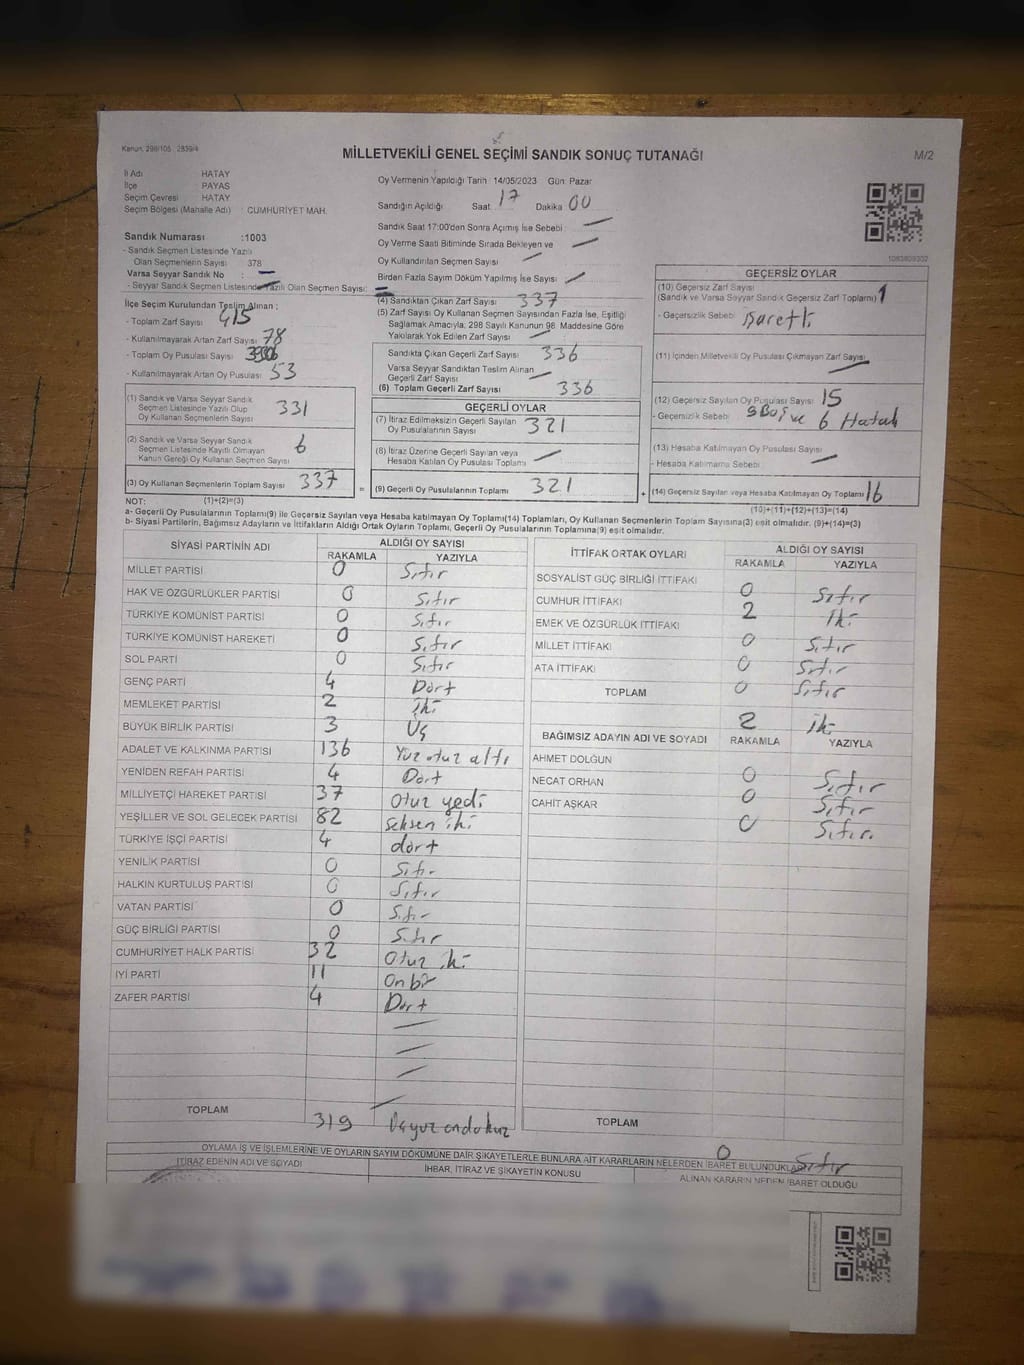 Kanun: 298/105 , 2839/4
MİLLETVEKİLİ GENEL SEÇİMİ SANDIK SONUÇ TUTANAĞI
M/2
İl Adı HATAY
İlçe PAYAS
Seçim Çevresi HATAY
Seçim Bölgesi (Mahalle Adı) : CUMHURİYET MAH.
Sandık Numarası :1003
- Sandık Seçmen Listesinde Yazılı
Olan Seçmenlerin Sayısı 378
Varsa Seyyar Sandık No : —
- Seyyar Sandık Seçmen Listesinde Yazılı Olan Seçmen Sayısı: —
İlçe Seçim Kurulundan Teslim Alınan ;
- Toplam Zarf Sayısı 415
- Kullanılmayarak Artan Zarf Sayısı 78
- Toplam Oy Pusulası Sayısı
- Kullanılmayarak Artan Oy Pusulası 53
(1) Sandık ve Varsa Seyyar Sandık
Seçmen Listesinde Yazılı Olup
Oy Kullanan Seçmenlerin Sayısı 331
(2) Sandık ve Varsa Seyyar Sandık
Seçmen Listesinde Kayıtlı Olmayan
Kanun Gereği Oy Kullanan Seçmen Sayısı 6
(3) Oy Kullanan Seçmenlerin Toplam Sayısı 337
Oy Vermenin Yapıldığı Tarih : 14/05/2023 Gün: Pazar
Sandığın Açıldığı Saat 17 Dakika 00
Sandık Saat 17:00'den Sonra Açımış İse Sebebi —
Oy Verme Saati Bitiminde Sırada Bekleyen ve —
Oy Kullandırılan Seçmen Sayısı —
Birden Fazla Sayım Döküm Yapılmış İse Sayısı —
(4) Sandıktan Çıkan Zarf Sayısı 337
(5) Zarf Sayısı Oy Kullanan Seçmen Sayısından Fazla İse, Eşitliği
Sağlamak Amacıyla; 298 Sayılı Kanunun 98. Maddesine Göre
Yakılarak Yok Edilen Zarf Sayısı —
Sandıkta Çıkan Geçerli Zarf Sayısı 336
Varsa Seyyar Sandıktan Teslim Alınan
Geçerli Zarf Sayısı —
(6) Toplam Geçerli Zarf Sayısı 336
GEÇERLİ OYLAR
(7) İtiraz Edilmeksizin Geçerli Sayılan
Oy Pusulalarının Sayısı 321
(8) İtiraz Üzerine Geçerli Sayılan veya
Hesaba Katılan Oy Pusulası Toplamı —
= (9) Geçerli Oy Pusulalarının Toplamı 321
1083809302
GEÇERSİZ OYLAR
(10) Geçersiz Zarf Sayısı
(Sandık ve Varsa Seyyar Sandık Geçersiz Zarf Toplamı) 1
- Geçersizlik Sebebi işaretli
(11) İçinden Milletvekili Oy Pusulası Çıkmayan Zarf Sayısı —
(12) Geçersiz Sayılan Oy Pusulası Sayısı 15
- Geçersizlik Sebebi 9 Boş ve 6 Hatalı
(13) Hesaba Katılmayan Oy Pusulası Sayısı
- Hesaba Katılmama Sebebi —
+ (14) Geçersiz Sayılan veya Hesaba Katılmayan Oy Toplamı 16
NOT: (1)+(2)=(3)
(10)+(11)+(12)+(13)=(14)
a- Geçerli Oy Pusulaları Toplamı(9) ile Geçersiz Sayılan veya Hesaba katılmayan Oy Toplamı(14) Toplamları, Oy Kullanan Seçmenlerin Toplam Sayısına(3) eşit olmalıdır. (9)+(14)=(3)
b- Siyasi Partilerin, Bağımsız Adayların ve İttifakların Aldığı Ortak Oyların Toplamı, Geçerli Oy Pusulalarının Toplamına(9) eşit olmalıdır.
SİYASİ PARTİNİN ADI ALDIĞI OY SAYISI
RAKAMLA YAZIYLA
MİLLET PARTİSİ 0 Sıfır
HAK VE ÖZGÜRLÜKLER PARTİSİ 0 Sıfır
TÜRKİYE KOMÜNİST PARTİSİ 0 Sıfır
TÜRKİYE KOMÜNİST HAREKETİ 0 Sıfır
SOL PARTİ 0 Sıfır
GENÇ PARTİ 4 Dört
MEMLEKET PARTİSİ 2 iki
BÜYÜK BİRLİK PARTİSİ 3 Üç
ADALET VE KALKINMA PARTİSİ 136 Yüz otuz altı
YENİDEN REFAH PARTİSİ 4 Dört
MİLLİYETÇİ HAREKET PARTİSİ 37 Otuz yedi
YEŞİLLER VE SOL GELECEK PARTİSİ 82 Seksen iki
TÜRKİYE İŞÇİ PARTİSİ 4 dört
YENİLİK PARTİSİ 0 Sıfır
HALKIN KURTULUŞ PARTİSİ 0 Sıfır
VATAN PARTİSİ 0 Sıfır
GÜÇ BİRLİĞİ PARTİSİ 0 Sıfır
CUMHURİYET HALK PARTİSİ 32 Otuz iki
İYİ PARTİ 11 Onbir
ZAFER PARTİSİ 4 Dört
TOPLAM 319 Üçyüz ondokuz
İTTİFAK ORTAK OYLARI ALDIĞI OY SAYISI
RAKAMLA YAZIYLA
SOSYALİST GÜÇ BİRLİĞİ İTTİFAKI 0 Sıfır
CUMHUR İTTİFAKI 2 İki
EMEK VE ÖZGÜRLÜK İTTİFAKI 0 Sıfır
MİLLET İTTİFAKI 0 Sıfır
ATA İTTİFAKI 0 Sıfır
TOPLAM 2 iki
BAĞIMSIZ ADAYIN ADI VE SOYADI RAKAMLA YAZIYLA
AHMET DOLĞUN 0 Sıfır
NECAT ORHAN 0 Sıfır
CAHİT AŞKAR 0 Sıfır.
TOPLAM 0 Sıfır
OYLAMA İŞ VE İŞLEMLERİNE VE OYLARIN SAYIM DÖKÜMÜNE DAİR ŞİKAYETLERLE BUNLARA AİT KARARLARIN NELERDEN İBARET BULUNDUKLARI
İTİRAZ EDENİN ADI VE SOYADI İHBAR, İTİRAZ VE ŞİKAYETİN KONUSU ALINAN KARARIN NEDEN İBARET OLDUĞU